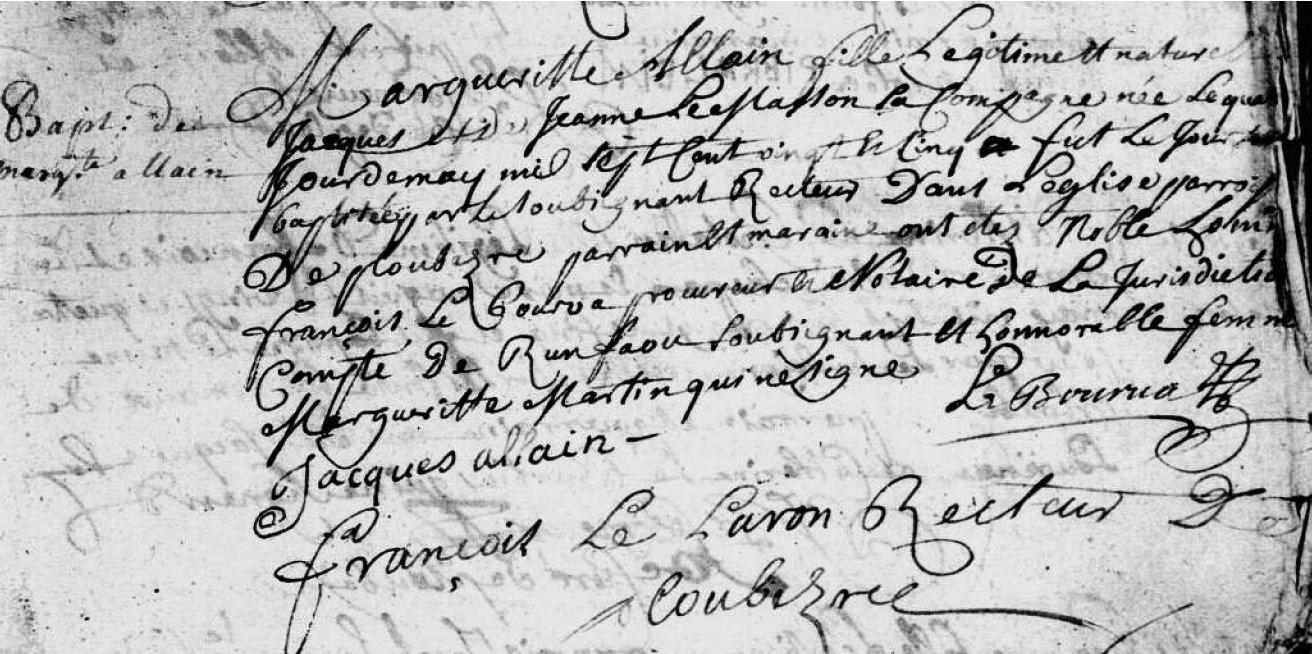 Bapt: de
marg.te allain
Margueritte Allain fille Legitime et naturel
Jacques et de Jeanne Le Masson la Compagne née Le qua
Jour de may mil sept Cent vingt et Cinq fut Le Jour
baptisée par Le Soubignant Recteur Dans L'eglise parrois
De ploubezre parrain et maraine ont etez Noble homme
françois Le Bourva procureur et Notaire De La Jurisdictio
Compte de Runfaou soubignant et honnorable femme
Margueritte Martin qui ne signe Le Bourva
Jacques allain
françois Le Luron Recteur De
Loubezre